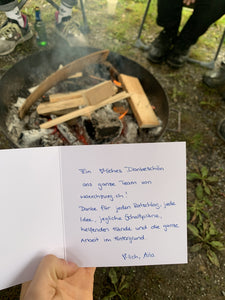 Ein ♥liches Dankeschön
ans ganze Team von
Danke für jeden Ratschlag, jede
Idee, jegliche
helfenden Hände und die ganze
Arbeit im Hintergrund.